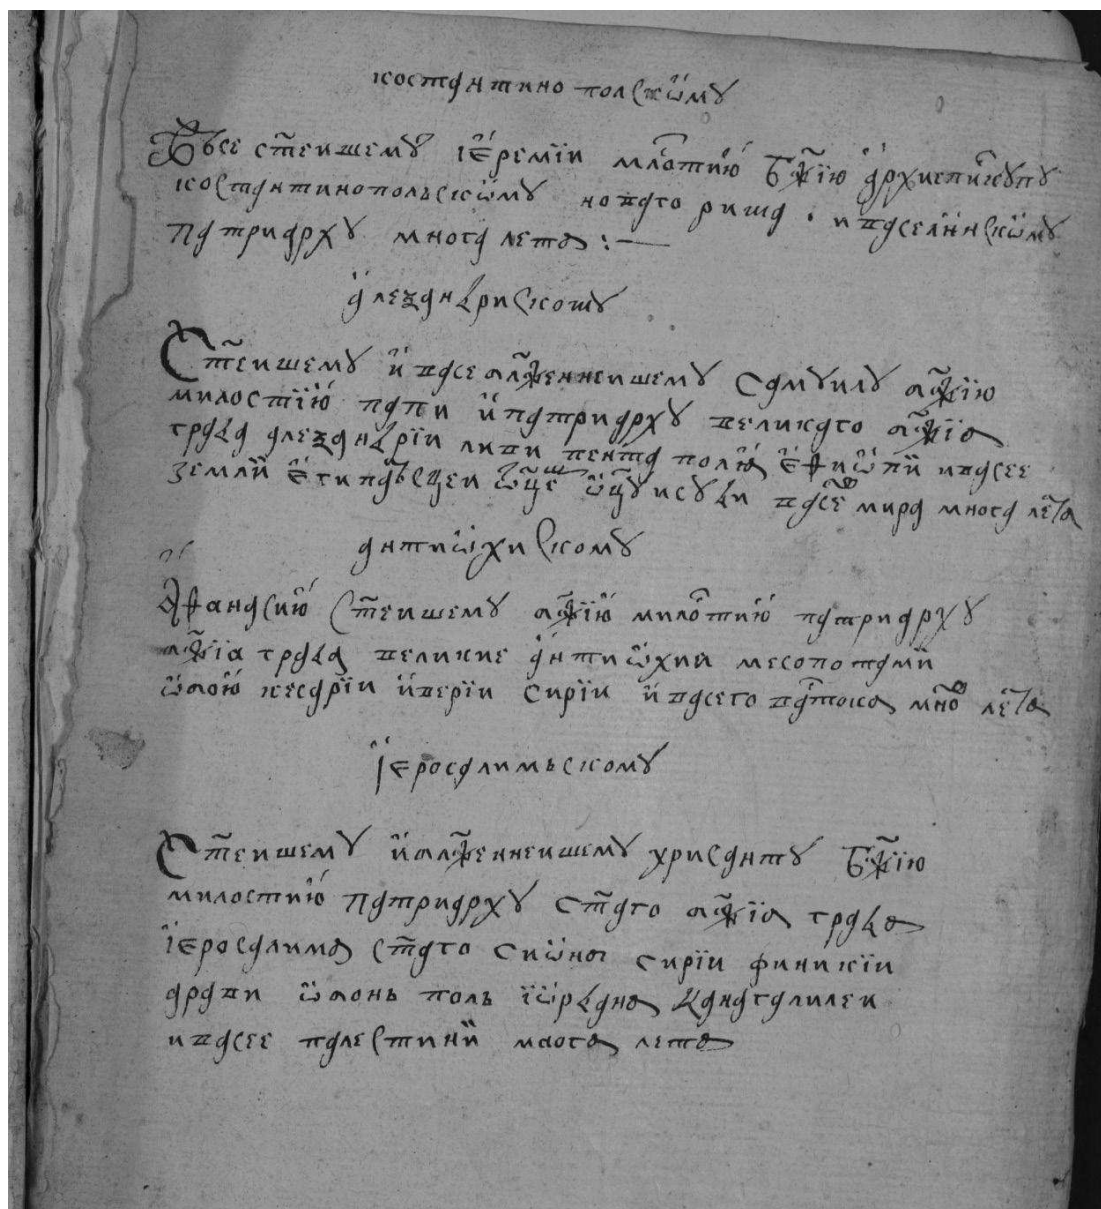 костантино полскѡ́му
Въсе ст҃еишему̀ іе҆ремїи мл҇отию̀ бж҃їю а҆рхиепи҇купу
костантинопольскѡму новаго рима · и васелѐнскѡму
патриарху многа лета :—
а҆леѯандрискому
Ст҃еишему и҆ васе блж҃еннеишему самуилу бж҃їю
милостїю̀ папи и҆ патриарху великаго бж҃їа
града алеѯандрїи ливи пента полїа е҆ѳиѡпїи и васее
земли е҆гипатьсцеи ѡц҃еⷨ ѡц҃у и суди васеⷢ мира многа ле҇та
антиѡхискому
Аѳанасию̀ ст҃еишему бж҃їю мил҇отию̀ патриарху
бж҃їа града великие а҆нтиѡхиїа месопотамїи
ѡбою̀ кесарїи и҆верїи сирїи и҆ васего ва҇тока мноⷢ ле҇та
Їеросалимьскому
Ст҃еишему и҆ блж҃еннеишему хрисанту бж҃їю
милостию̀ патриарху ст҃аго бж҃їа града
їеросалима ст҃аго сиѡна сирїи финикїи
арави ѡбонь поль їѡрдана канагалилеи
и васее палестинїи маога лета